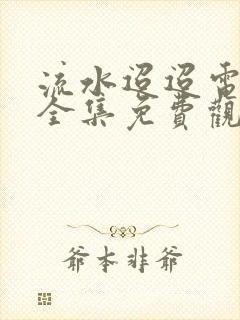 流水迢迢電
全集免費觀
爺本非爺